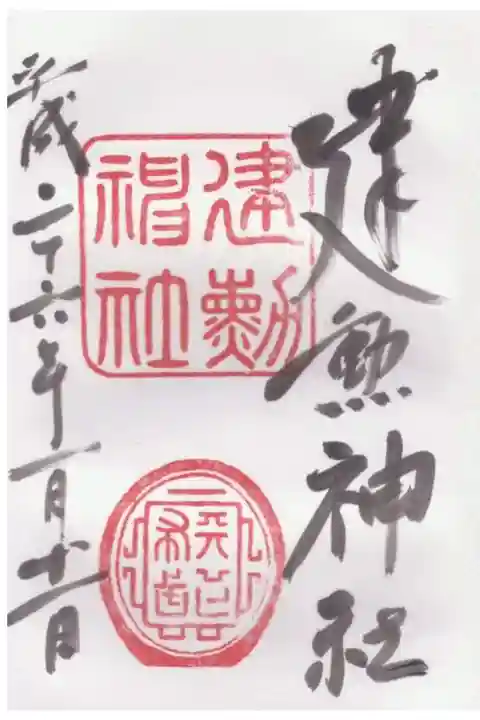 建勲神社
建勲
神社
平成二十六年一月十一日